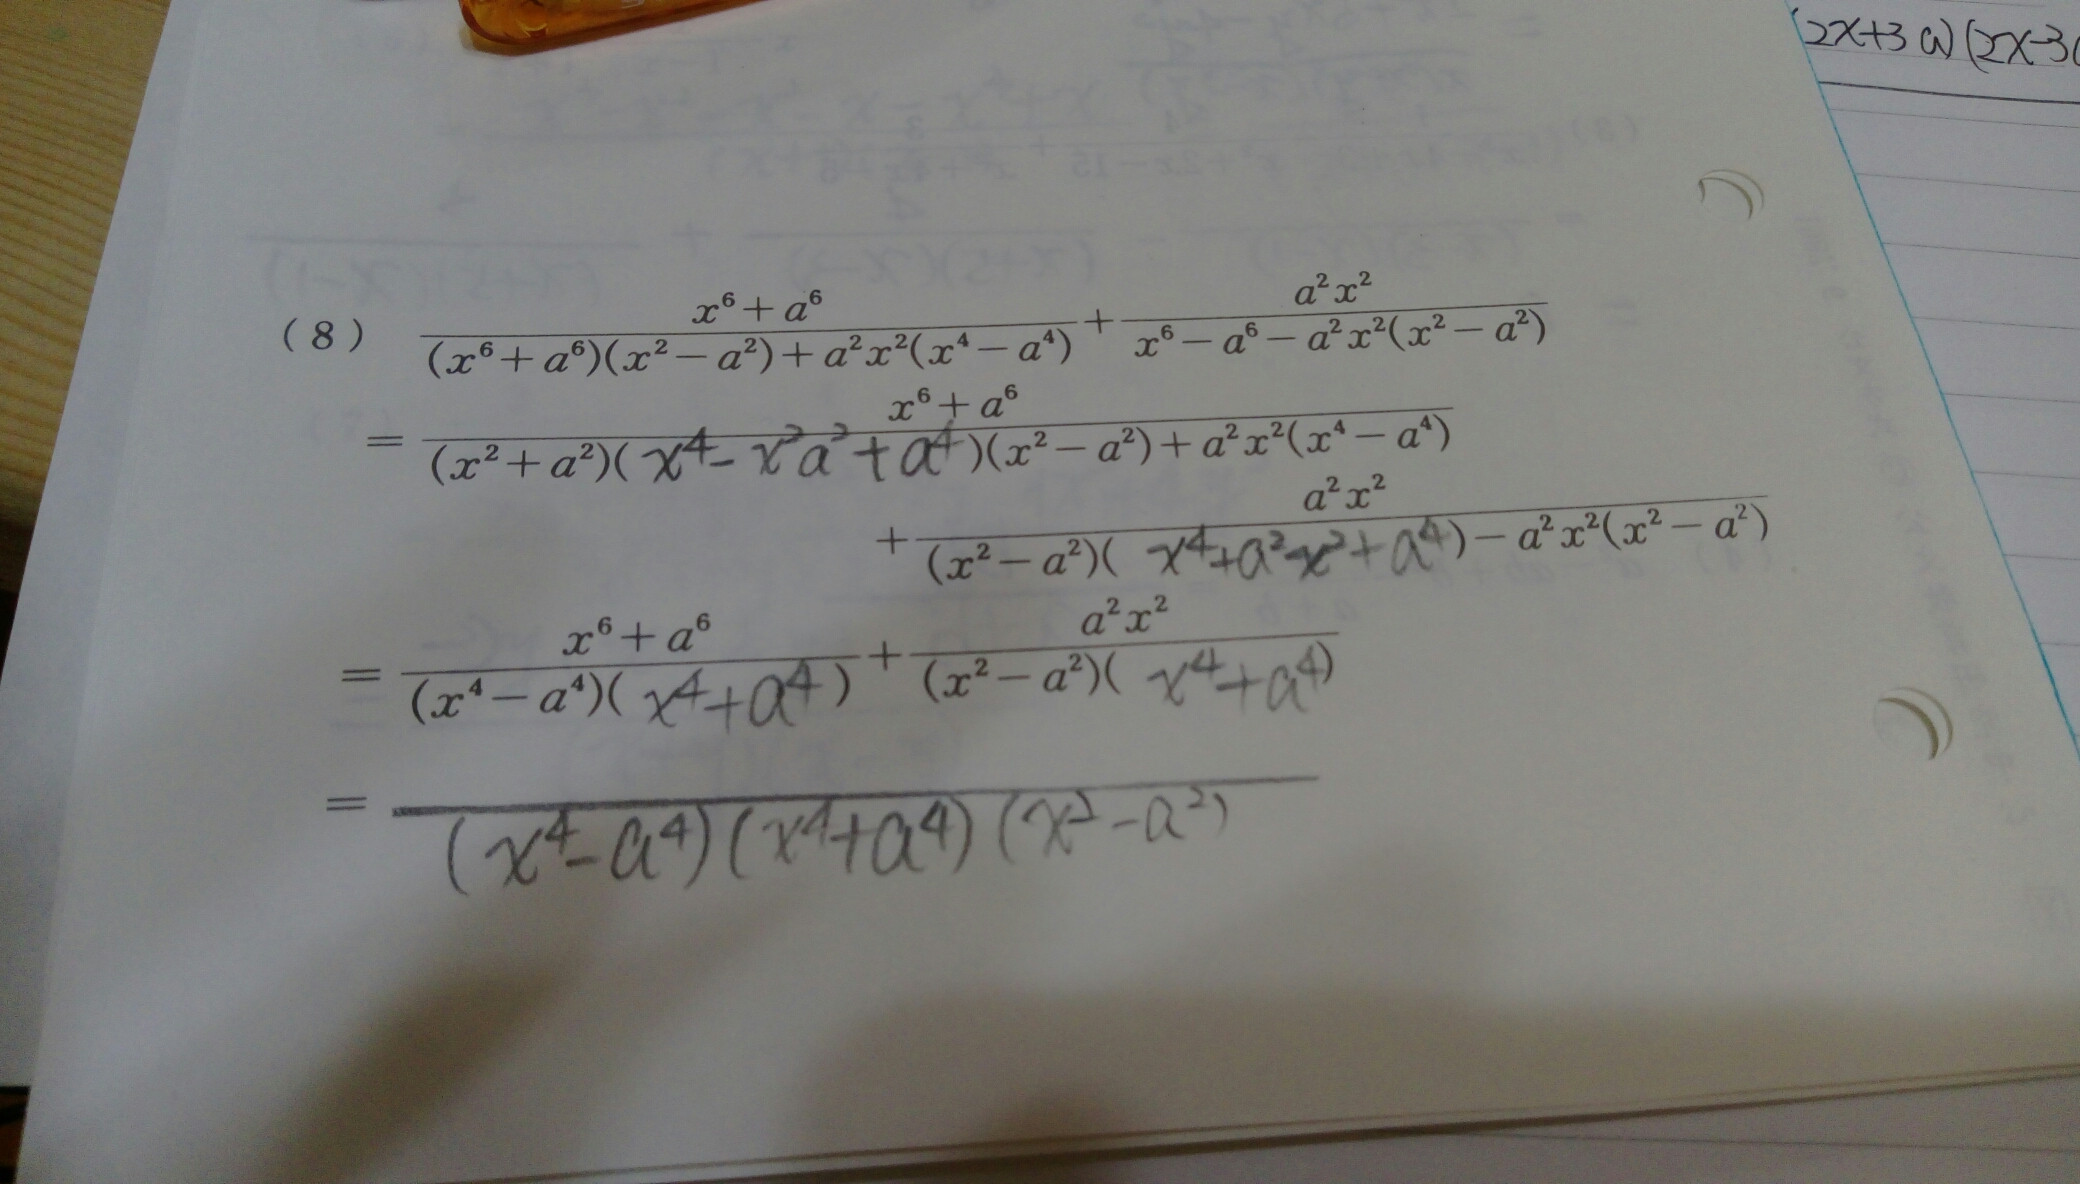 (2x+3a)(2x-3
(8) \frac{x^6+a^6}{(x^6+a^6)(x^2-a^2)+a^2x^2(x^4-a^4)} + \frac{a^2x^2}{x^6-a^6-a^2x^2(x^2-a^2)}
= \frac{x^6+a^6}{(x^2+a^2)(x^4-x^2a^2+a^4)(x^2-a^2)+a^2x^2(x^4-a^4)}
+ \frac{a^2x^2}{(x^2-a^2)(x^4+a^2x^2+a^4)-a^2x^2(x^2-a^2)}
= \frac{x^6+a^6}{(x^4-a^4)(x^4+a^4)} + \frac{a^2x^2}{(x^2-a^2)(x^4+a^4)}
= \frac{}{(x^4-a^4)(x^4+a^4)(x^2-a^2)}